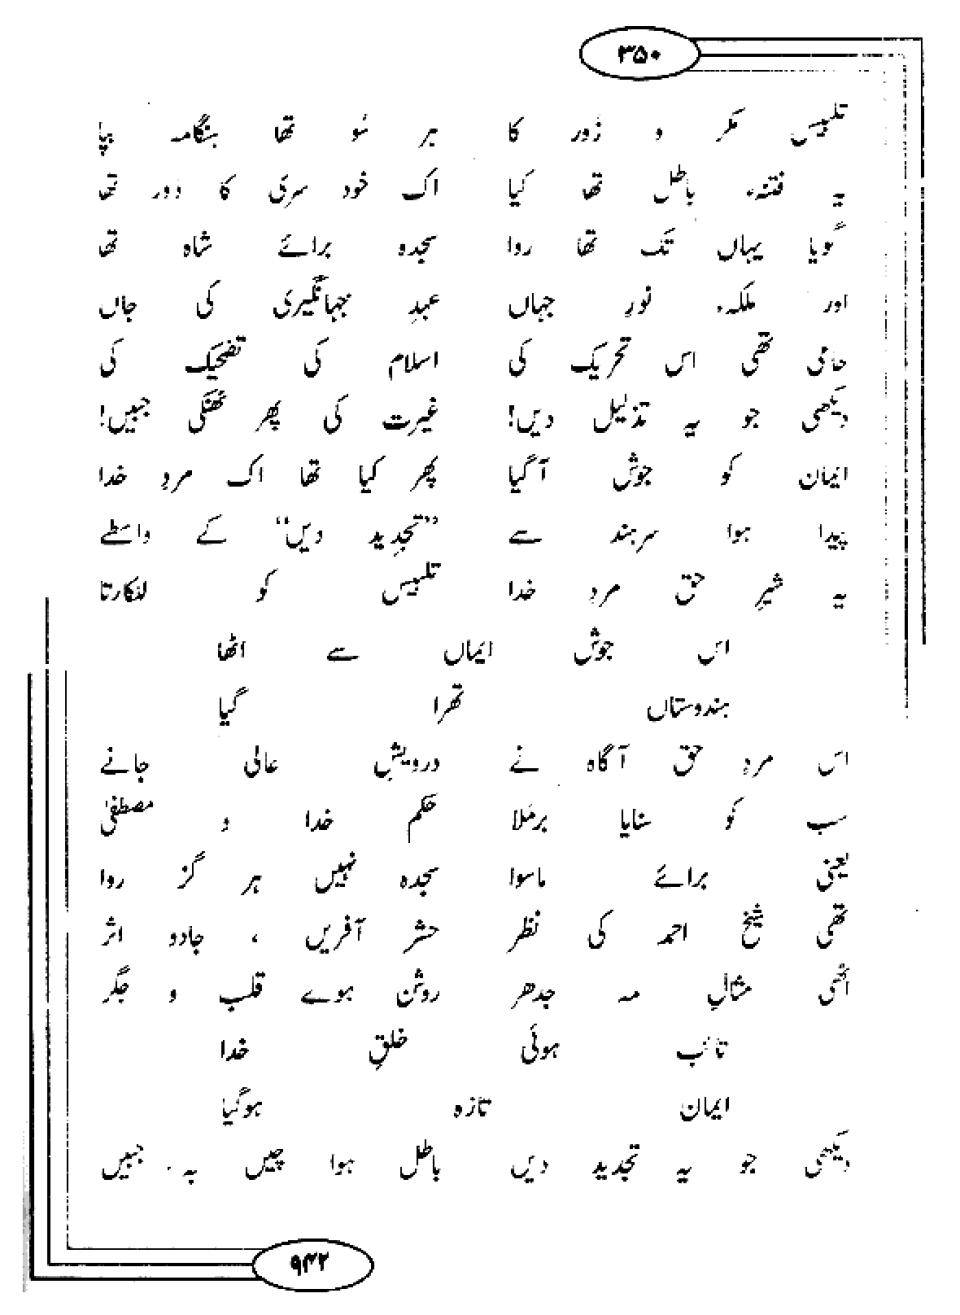 ۳۵۰
تلبیس مکر و زور کا ہر سُو تھا ہنگامہ بپا
یہ فتنہء باطل تھا کیا اک خود سری کا دور تھا
گویا یہاں تک تھا روا سجدہ برائے شاہ تھا
اور ملکہء نورِ جہاں عہدِ جہانگیری کی جاں
حامی تھی اس تحریک کی اسلام کی تضحیک کی
دیکھی جو یہ تذلیل دیں! غیرت کی پھر جھنگی جبیں!
ایمان کو جوش آگیا پھر کیا تھا اک مردِ خدا
پیدا ہوا سرہند سے "تجدید دیں" کے واسطے
یہ شیرِ حق مردِ خدا تلبیس کو للکارتا
اس جوش ایماں سے اٹھا
ہندوستاں تھرا گیا
اس مردِ حق آگاہ نے درویشِ عالی جانے
سب کو سنایا برملا حکم خدا و مصطفیٰ
یعنی برائے ماسوا سجدہ نہیں ہر گز روا
تھی شیخ احمد کی نظر حشر آفریں ، جادو اثر
اٹھی مثالِ مہ جدھر روشن ہوے قلب و جگر
تائب ہوئی خلقِ خدا
ایمان تازہ ہوگیا
دیکھی جو یہ تجدید دیں باطل ہوا چیں بہ جبیں
۹۴۲